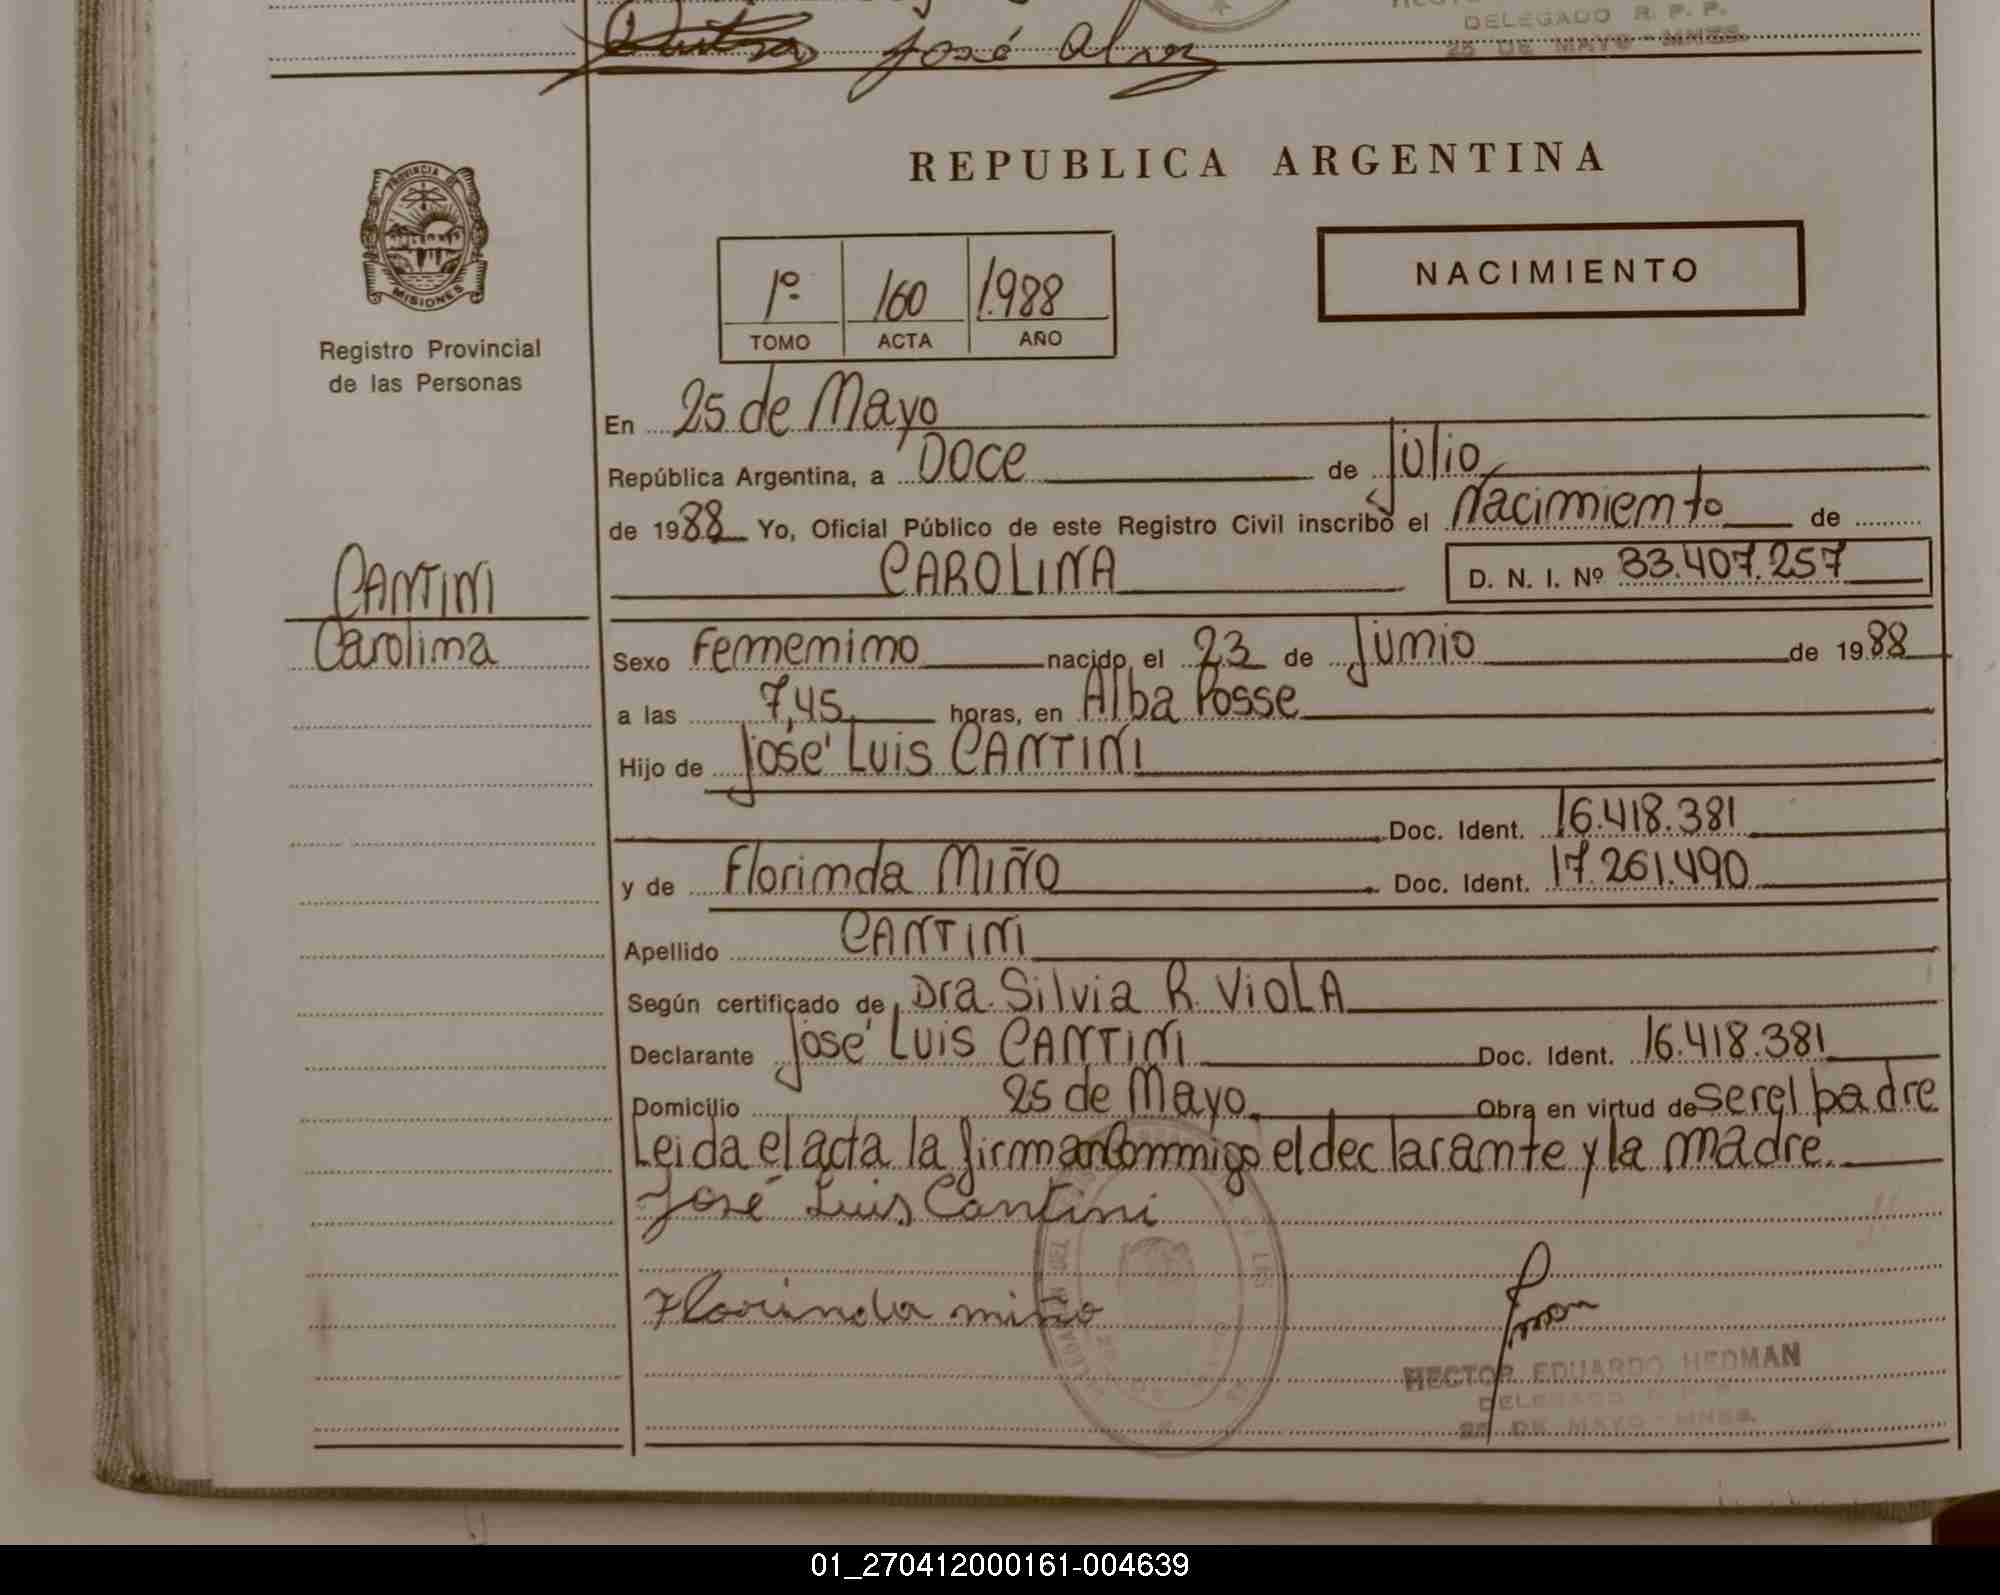 José
DELEGADO R. P. P.
25 DE MAYO - MNES.
REPUBLICA ARGENTINA
PROVINCIA DE
MISIONES
Registro Provincial
de las Personas
1º 160 1.988
TOMO ACTA AÑO
NACIMIENTO
En 25 de Mayo
República Argentina, a Doce de Julio
de 1988 Yo, Oficial Público de este Registro Civil inscribo el Nacimiento de
CAROLINA D. N. I. Nº 33.407.257
CANTINI
Carolina
Sexo Femenino nacido el 23 de Junio de 1988
a las 7,45 horas, en Alba Posse
Hijo de José Luis CANTINI
Doc. Ident. 16.418.381
y de Florinda MIÑO Doc. Ident. 17.261.490
Apellido CANTINI
Según certificado de Dra. Silvia R. VIOLA
Declarante José Luis CANTINI Doc. Ident. 16.418.381
Domicilio 25 de Mayo Obra en virtud de ser el padre
Leida el acta la firman Conmigo el declarante y la madre.
José Luis Cantini
Florinda miño
HECTOR EDUARDO HEDMAN
DELEGADO R. P. P.
25 DE MAYO - MNES.
01_270412000161-004639